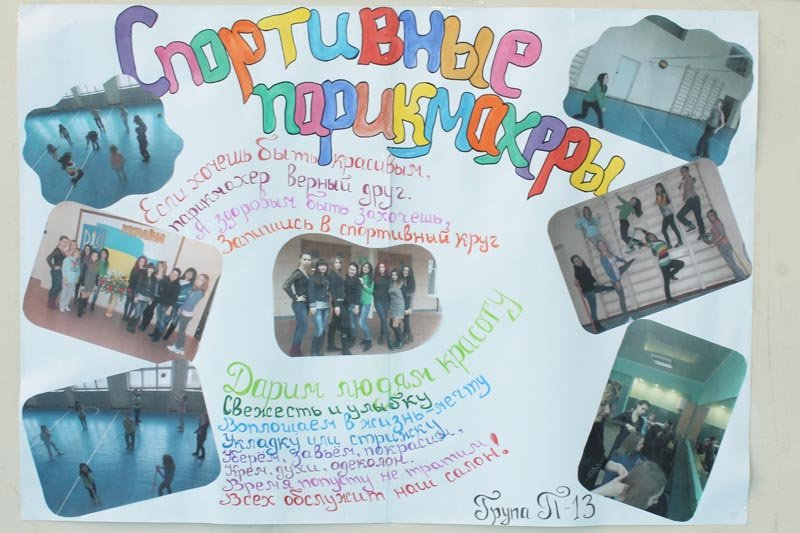 Спортивные
парикмахеры
Если хочешь быть красивым,
парикмахер верный друг.
А здоровым быть захочешь,
Запишись в спортивный круг
Дарим людям красоту
Свежесть и улыбку
Воплощаем в жизнь мечту
Укладку или стрижку
Уберём, завьём, покрасим,
Крем, духи, одеколон.
Время попусту не тратим
Всех обслужит наш салон!
Група П-13